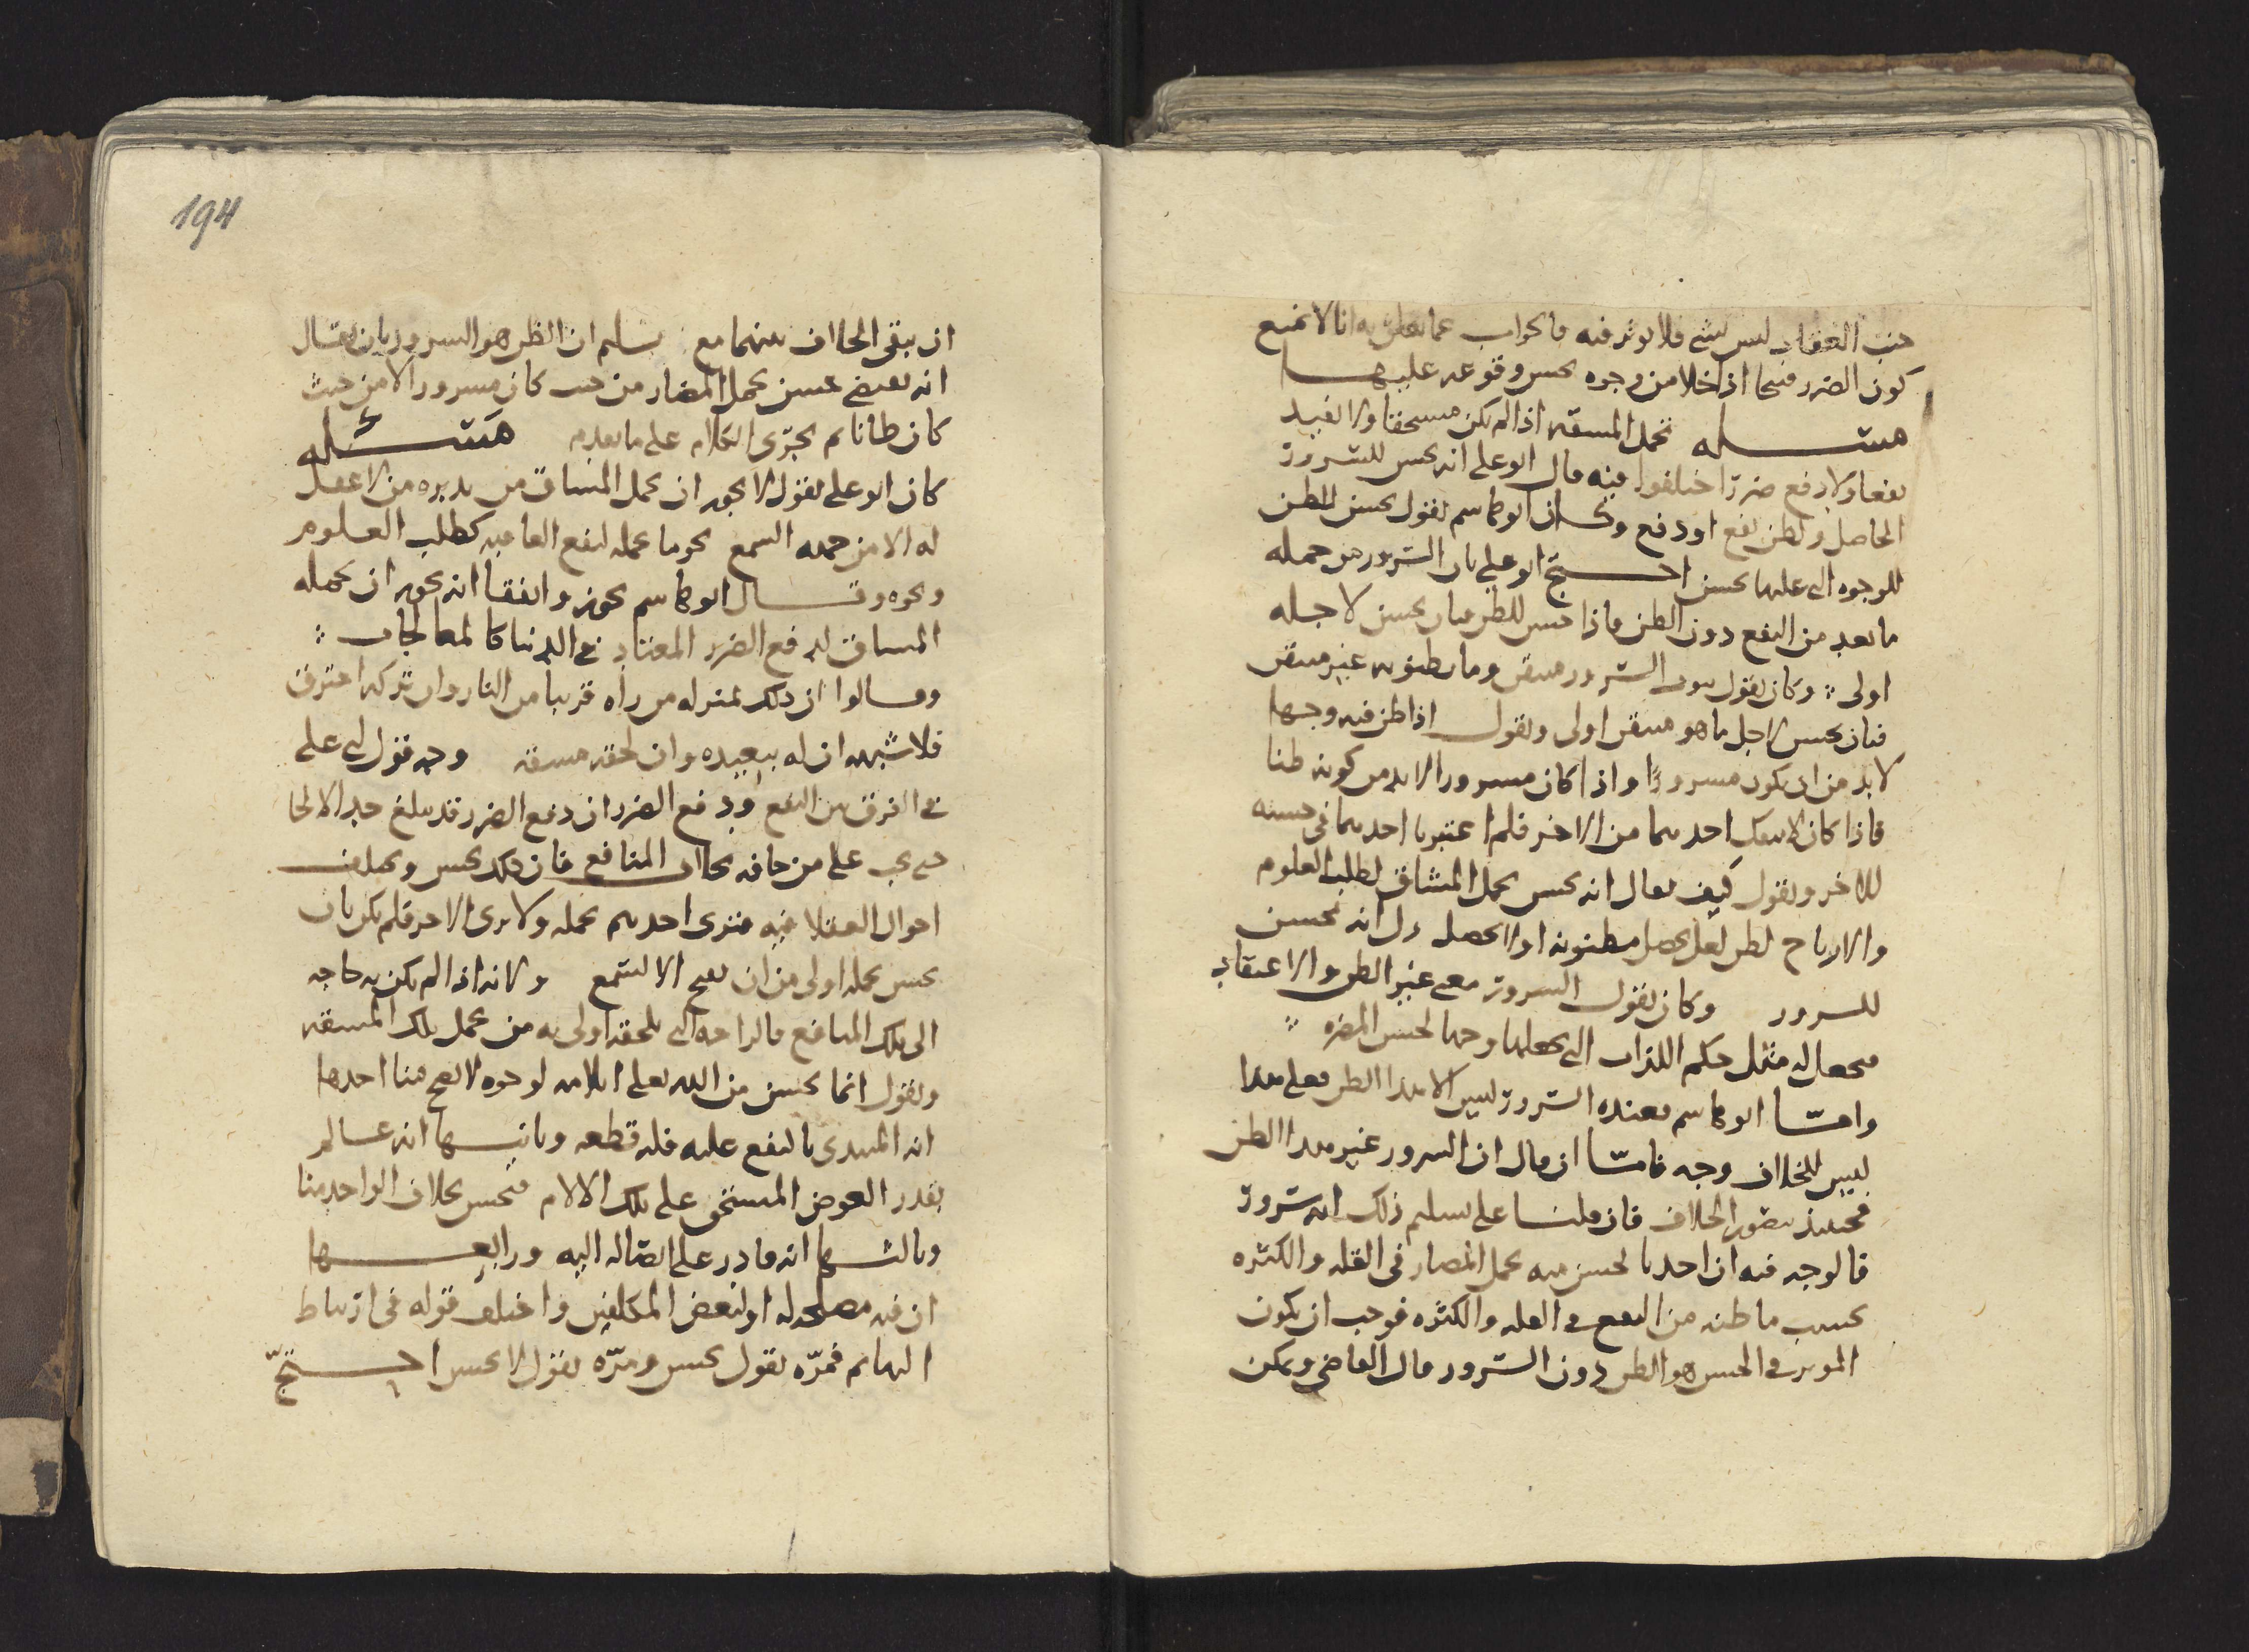 جنب العقاب ليس بشي فلا يوثر فيه والجواب عما تعلق به انا لا نمنع
كون الضرر قبيحا اذا خلا من وجوه يحسن وقوعه عليها
مسئله تحمل المشقه اذا لم يكن مستحقا ولا يفيد
نفعا ولا دفع ضرر اختلفوا فيه قال ابو علي انه يحسن للسرور
الحاصل ولظن نفع او دفع وكان ابو هاشم يقول يحسن للظن
للوجوه التي عليها يحسن احتج ابو علي بان السرور من جمله
ما يعد من النفع دون الظن فاذا حسن للظن فبان يحسن لاجله
اولى وكان يقول بين السرور متيقن وما يظنونه غير متيقن
فبان يحسن لاجل ما هو متيقن اولى ويقول اذا ظن فيه وجها
لا بد من ان يكون مسرورا واذا كان مسرورا لا بد من كونه ظنا
فاذا كان لا ينفك احدهما من الاخر فلم اعتبرنا احدهما في حسنه
للاخر ويقول كيف يقال انه يحسن تحمل المشاق لطلب العلوم
والارباح لظن لعل يحصل مظنونه او لا يحصل دل انه يحسن
للسرور وكان يقول السرور معنى غير الظن والاعتقاد
فيجعل له مثل حكم اللذات التي يجعلها وجها لحسن المضره
وامّا ابو هاشم فعنده السرور ليس الا هذا الظن فعلى هذا
ليس للخلاف وجه فامّا ان قال ان السرور غير هذا الظن
فحينئذ يتصور الخلاف فان قلنا على تسليم ذلك انه سرور
فالوجه فيه ان احدنا يحسن منه تحمل المضار في القله والكثره
بحسب ما ظنه من النفع في القله والكثره فوجب ان يكون
الموثر في الحسن هو الظن دون السرور قال القاضي ويمكن
194
ان يبقى الخلاف بينهما مع تسليم ان الظن هو السرور بان يقال
انه يقتضي حسن تحمل المضار من حيث كان مسرورا لا من حيث
كان ظانا ثم يجري الكلام على ما تقدم مسئله
كان ابو علي يقول لا يجوز ان يحمل المشاق من يدبره من لا عقل
له الا من جهه السمع نحو ما يحمله لنفع العاجبه كطلب العلوم
ونحوه وقال ابو هاشم يجوز واتفقا انه يجوز ان يحمله
المشاق لدفع الضرر المعتاد في الدنيا كالمعالجات
وقالوا ان ذلك بمنزله من راه قريبا من النار وان تركه احترق
فلا شبهه ان له تبعيده وان لحقه مشقه وجه قول ابي علي
في الفرق بين النفع ودفع الضرر ان دفع الضرر قد يبلغ حد الالجا
حتى يجب على من خافه بخلاف المنافع فان ذلك يحسن ويختلف
احوال العقلا فيه فنرى احدهم يحمله ولا يرى الاخر فلم يكن بان
يحسن تحمله اولى من ان يقبح الا لسمع ولانه اذا لم يكن به حاجه
الى تلك المنافع فالراحه التي تلحقه اولى به من تحمل تلك المشقه
ويقول انما يحسن من الله تعلى ايلامه لوجوه لا تصح منا احدها
انه المبتدي بالنفع عليه فله قطعه وثانيها انه عالم
بقدر العوض المستحق على تلك الالام فيحسن بخلاف الواحد منا
وثالثها انه قادر على ايصاله اليه ورابعها
ان فيه مصلحه له او لبعض المكلفين واختلف قوله في ارتباط
البهايم فمرّه يقول يحسن ومرّه يقول لا يحسن احتجّ